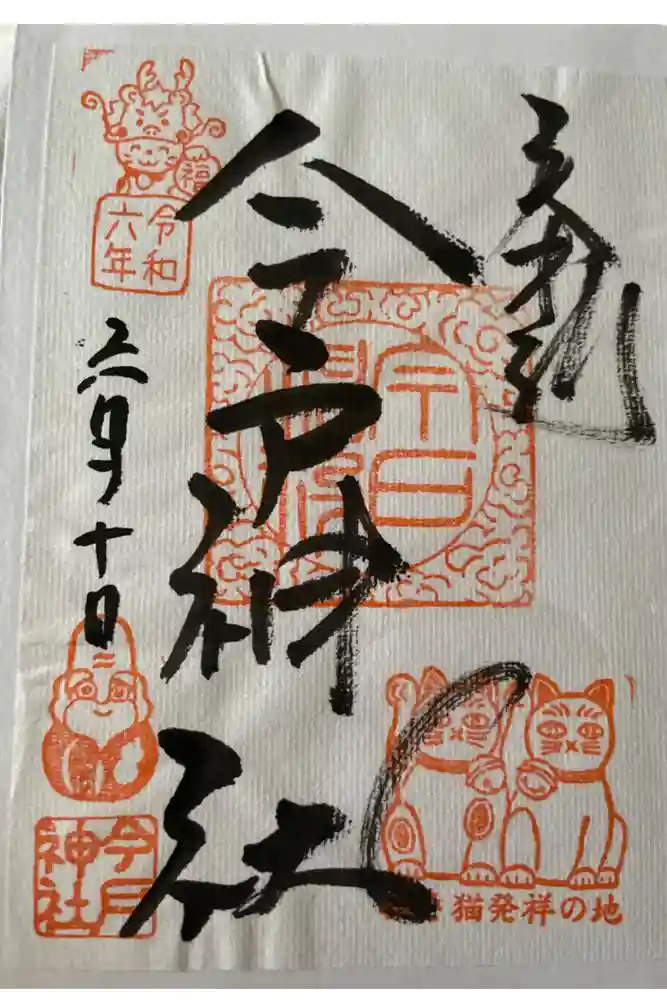 奉拝
今戸神社
福
令和
六年
六月十日
今戸
神社
猫発祥の地